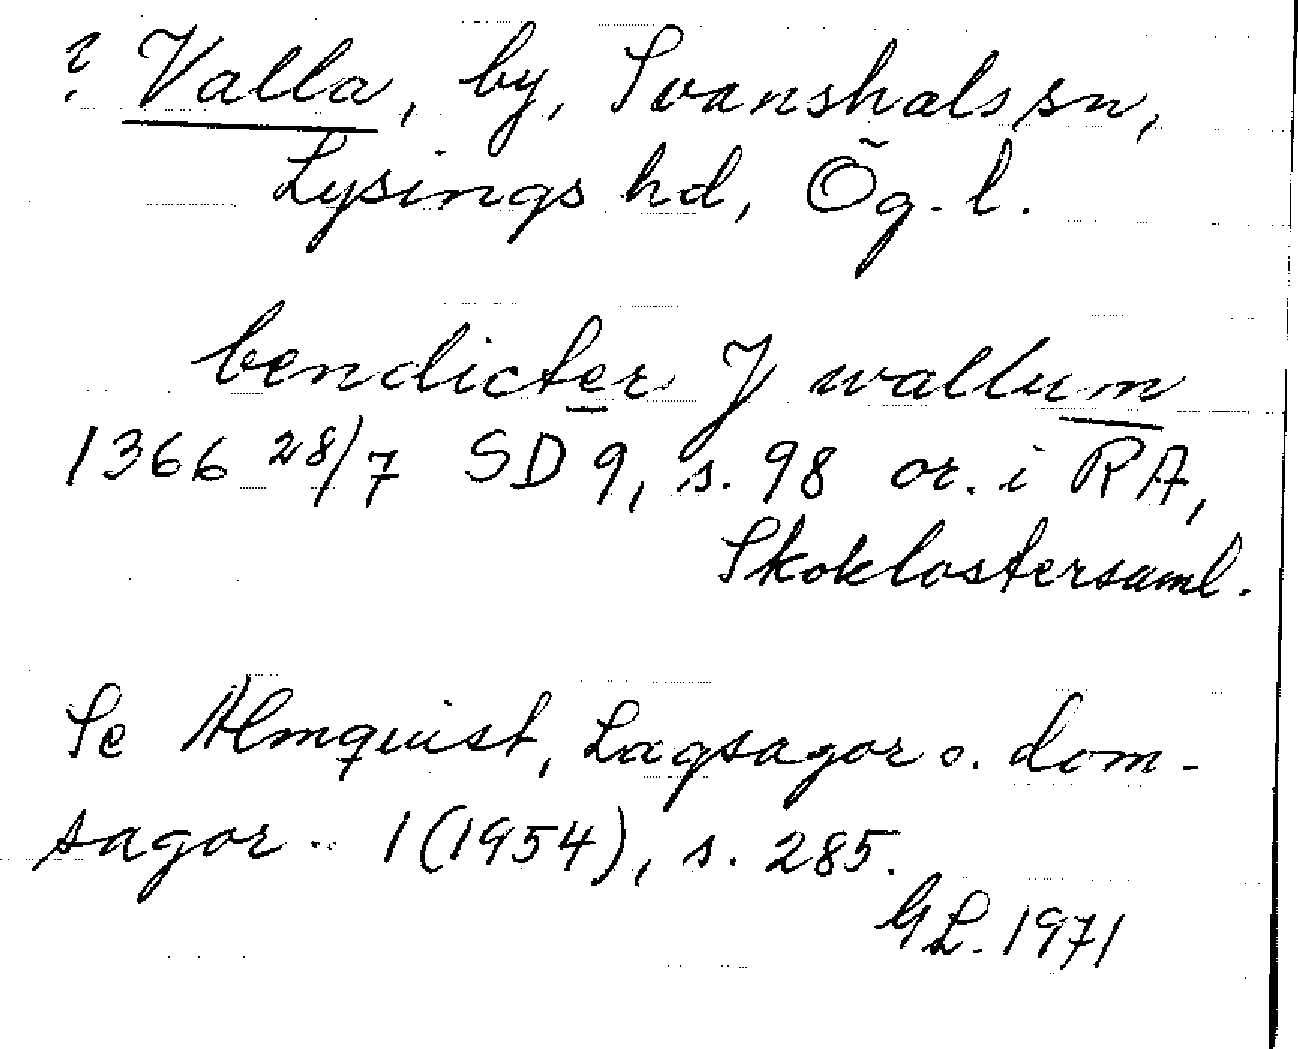 ? Valla, by, Svanshals sn,
Lysings hd, Ög. l.
bendicter J wallum
1366 28/7 SD 9, s. 98 or. i RA,
Skoklostersaml.
Se Almquist, Lagsagor o. dom-
sagor .. 1 (1954), s. 285.
GL. 1971